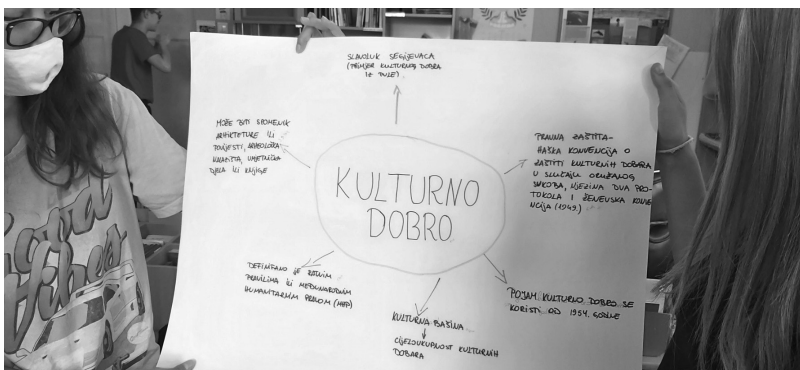 SLAVOLUK SERGIJEVACA
(PRIMJER KULTURNOG DOBRA
IZ PULE)
MOŽE BITI SPOMENIK
ARHITEKTURE ILI
POVIJESTI, ARHEOLOŠKA
NALAZIŠTA, UMJETNIČKA
DJELA ILI KNJIGE
PRAVNA ZAŠTITA-
HAŠKA KONVENCIJA O
ZAŠTITI KULTURNIH DOBARA
U SLUČAJU ORUŽANOG
SUKOBA, NJEZINA DVA PRO-
TOKOLA I ŽENEVSKA KONVE
NCIJA (1949.)
KULTURNO
DOBRO
DEFINIRANO JE RATNIM
PRAVILIMA ILI MEĐUNARODNIM
HUMANITARNIM PRAVOM (MHP)
KULTURNA BAŠTINA
CIJELOUKUPNOST KULTURNIH
DOBARA
POJAM KULTURNO DOBRO SE
KORISTI OD 1954. GODINE
Good
Vibes